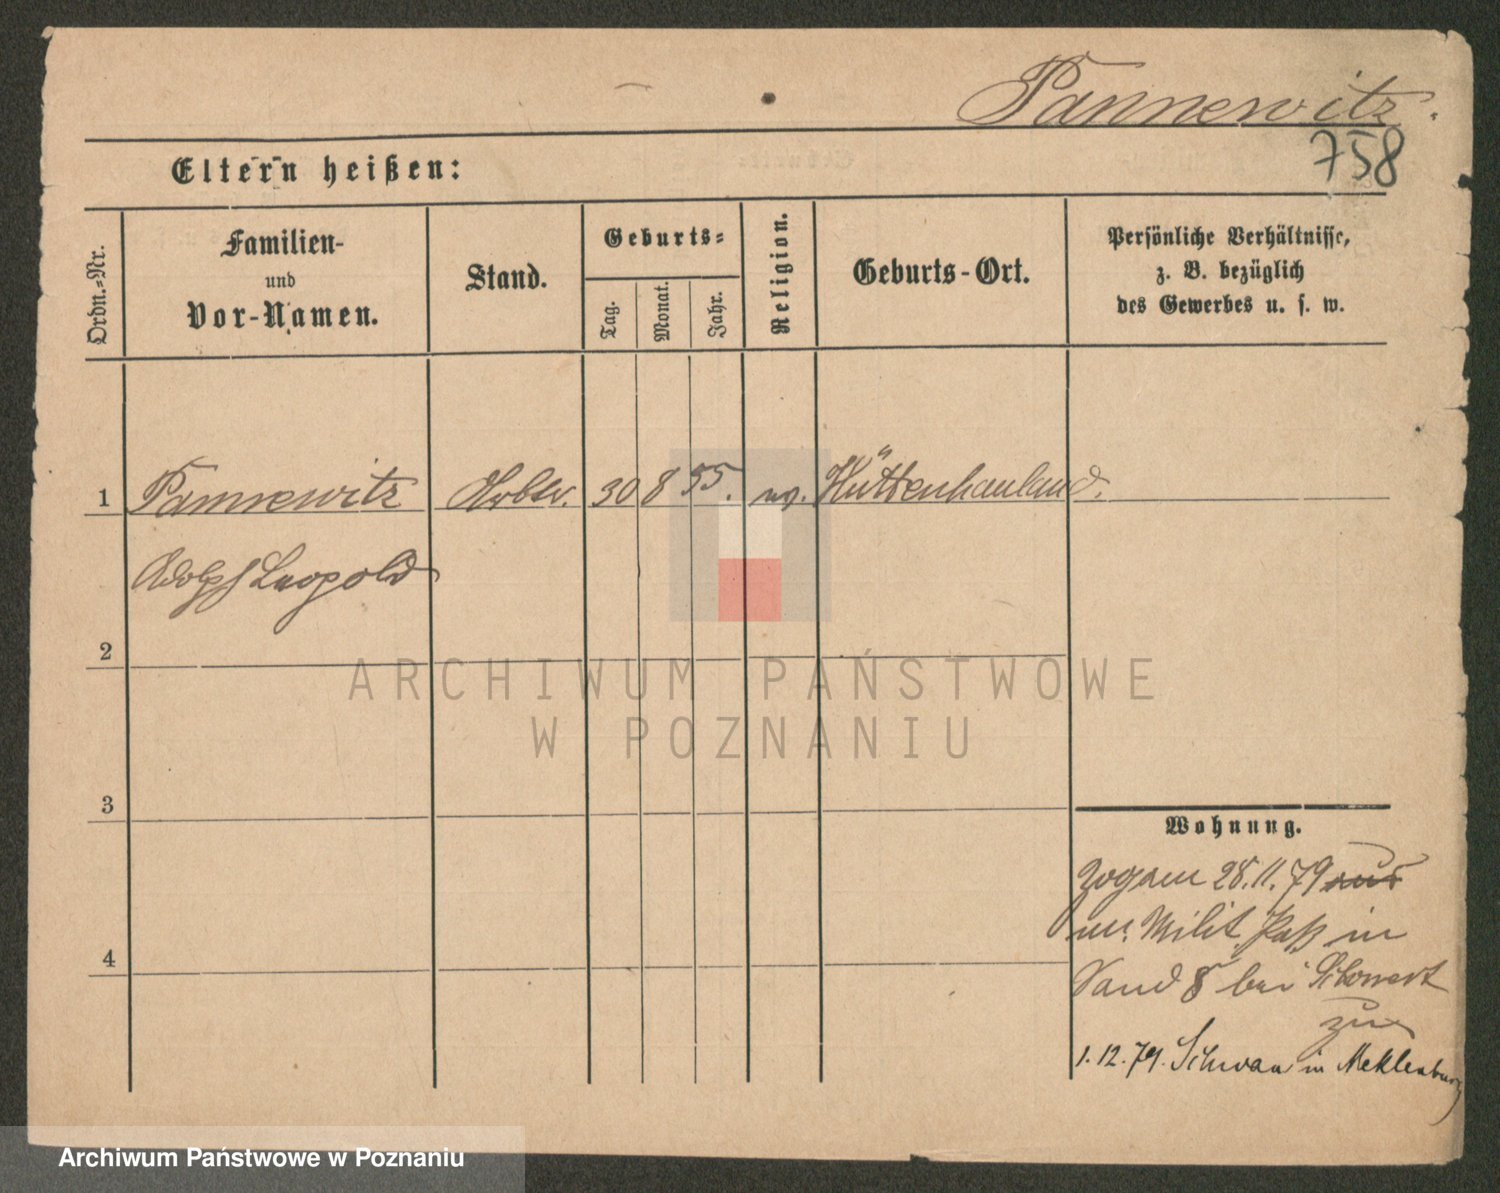 Pannewitz.
758
Eltern heißen:
Ordn.-Nr.
Familien-
und
Vor-Namen.
Stand.
Geburts-
Tag.
Monat.
Jahr.
Religion.
Geburts-Ort.
Persönliche Verhältnisse,
z. B. bezüglich
des Gewerbes u. s. w.
1 Pannewitz Arbtr. 30 8 55. ev. Hüttenhauland.
Adolph Leopold
2
ARCHIWUM PAŃSTWOWE
W POZNANIU
3
Wohnung.
Zog am 28.11.79 aus
m. Milit. Paß in
4
Sand 8 bei
zu
1.12.79. Schwaan in Meklenburg
Archiwum Państwowe w Poznaniu